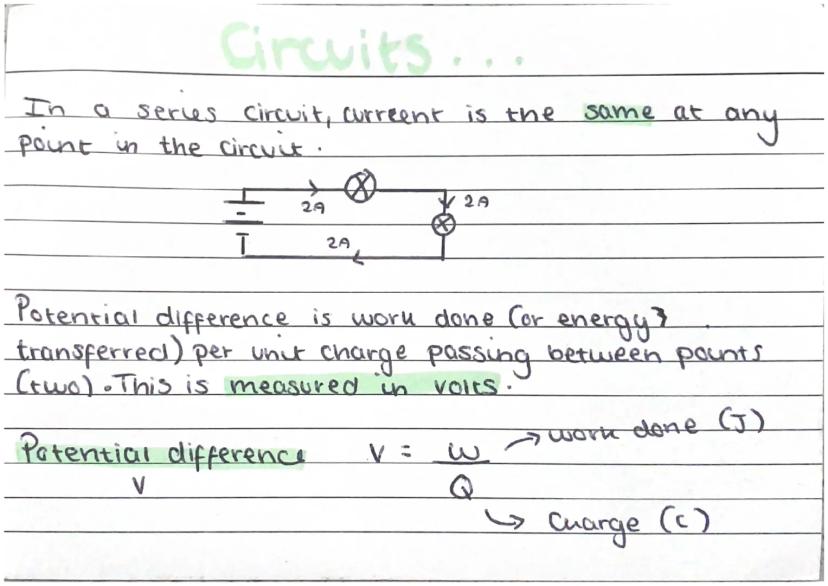 Circuits...
In a series circuit, curreent is the same at any
point in the circuit.
2A
2A
2A
Potential difference is work done (or energy?
transferred) per unit charge passing between points
(two). This is measured in volts.
Potential difference V = W → work done (J)
V Q
↳ Charge (C)